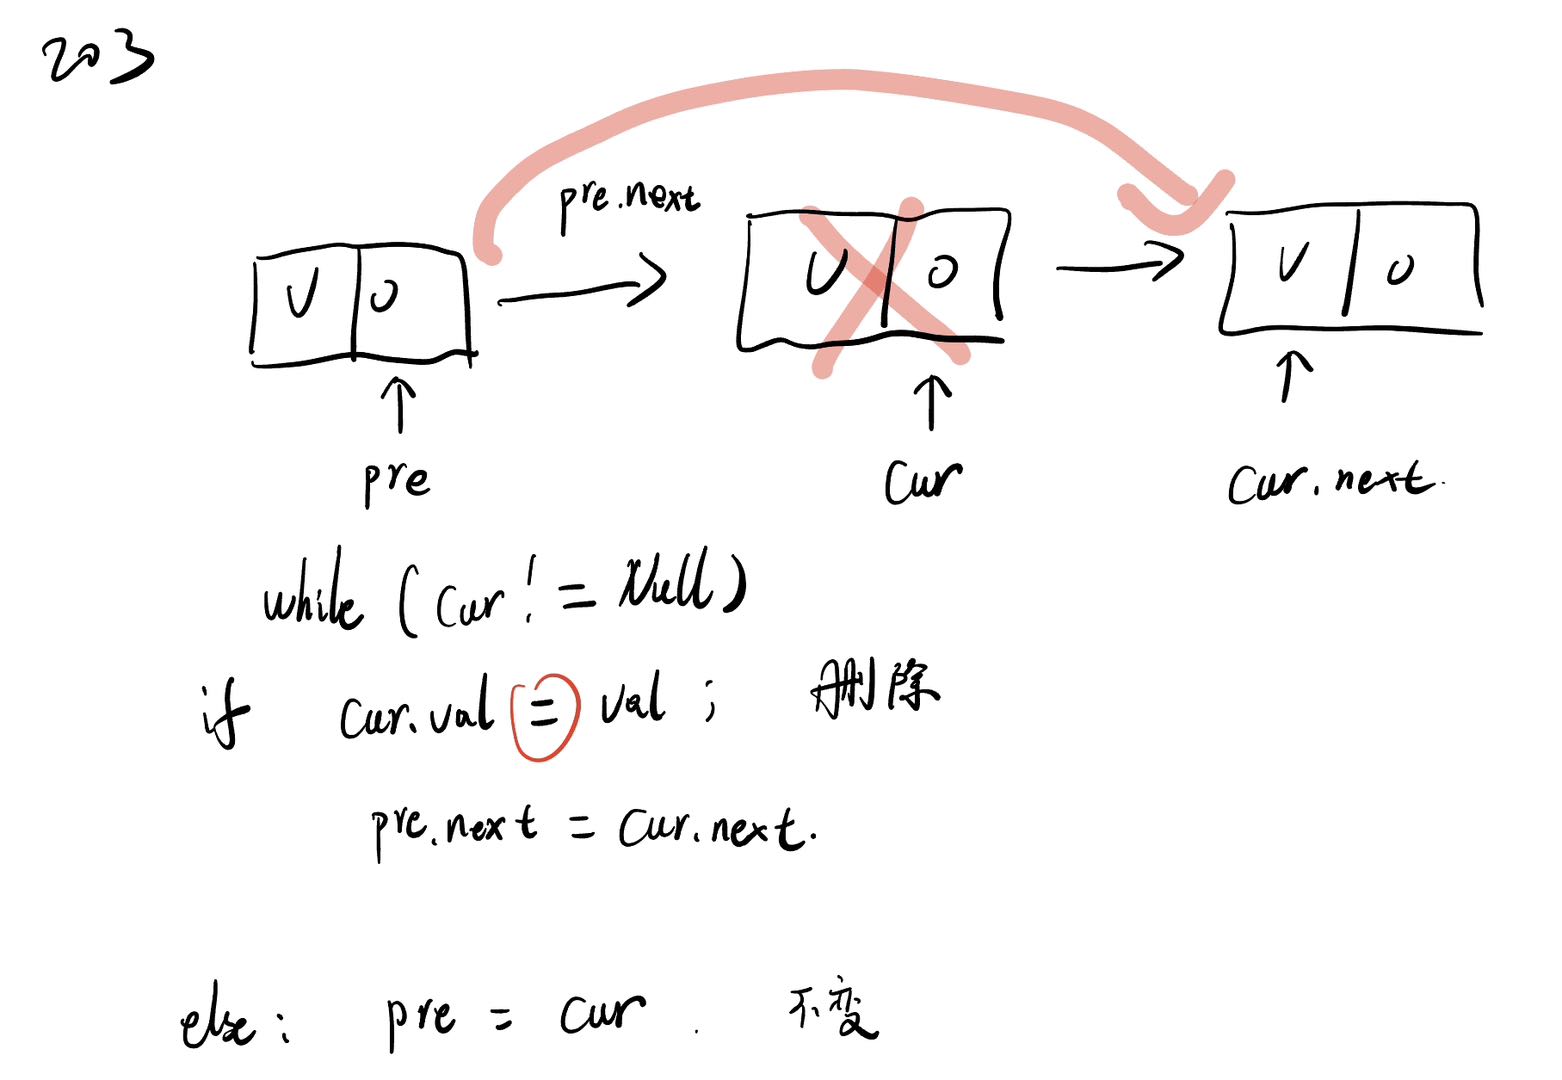 203
pre.next
V O
V O
V O
pre
cur
cur.next.
while (cur != Null)
if cur.val = val ; 删除
pre.next = cur.next.
else: pre = cur . 不变